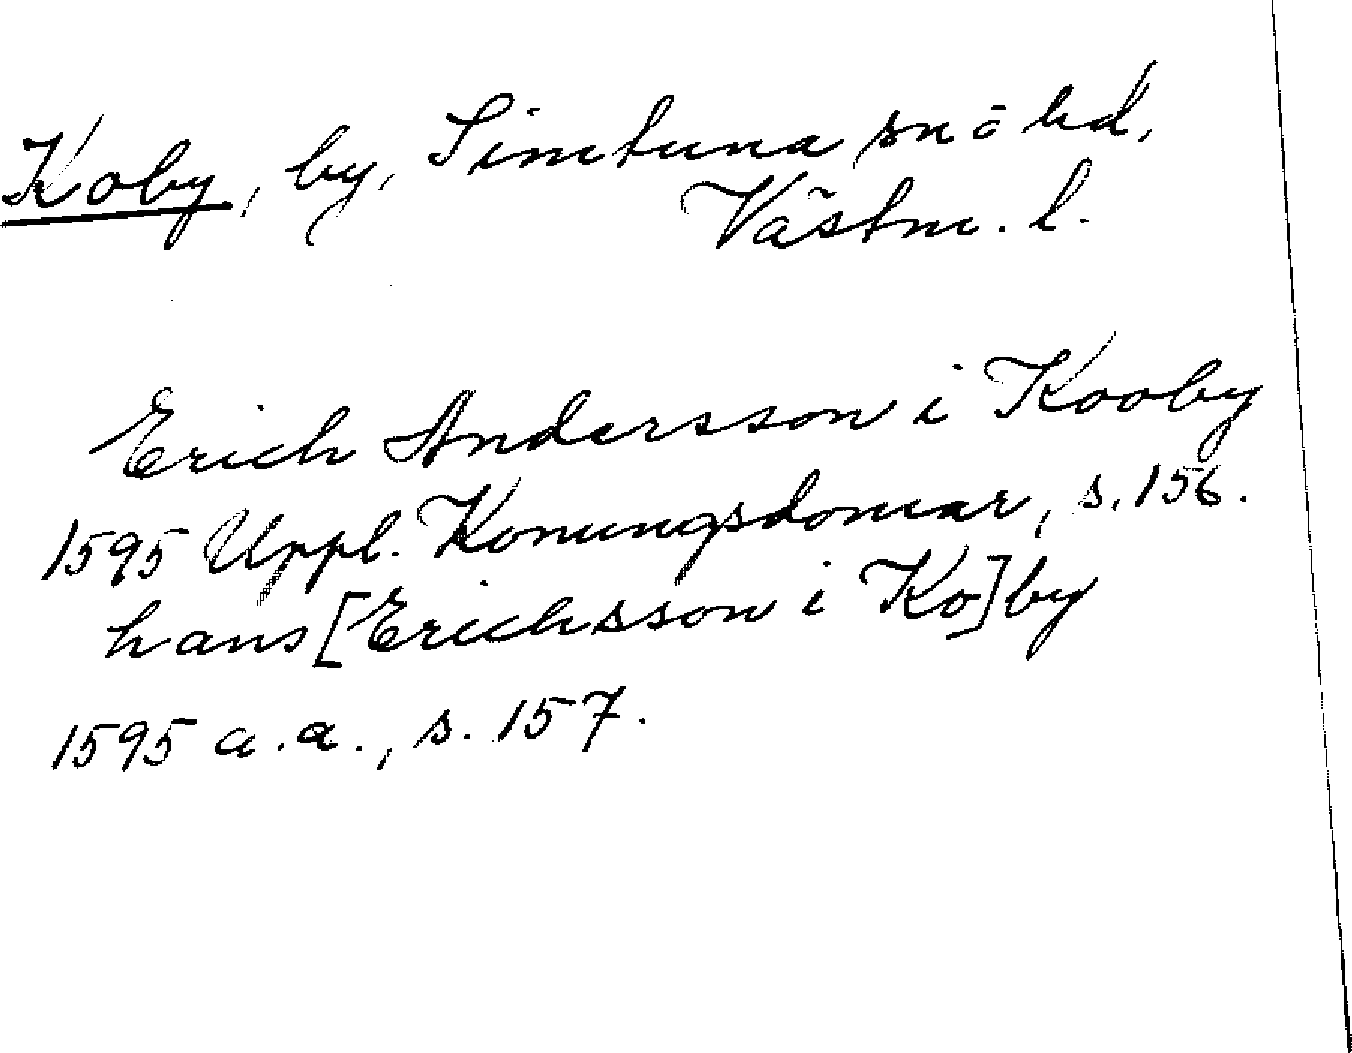 Koby, by, Simtuna sn o hd,
Västm. l.
Erich Andersson i Kooby
1595 Uppl. Konungsdomar, s. 156.
hans [Erichsson i Ko]by
1595 a.a., s. 157.